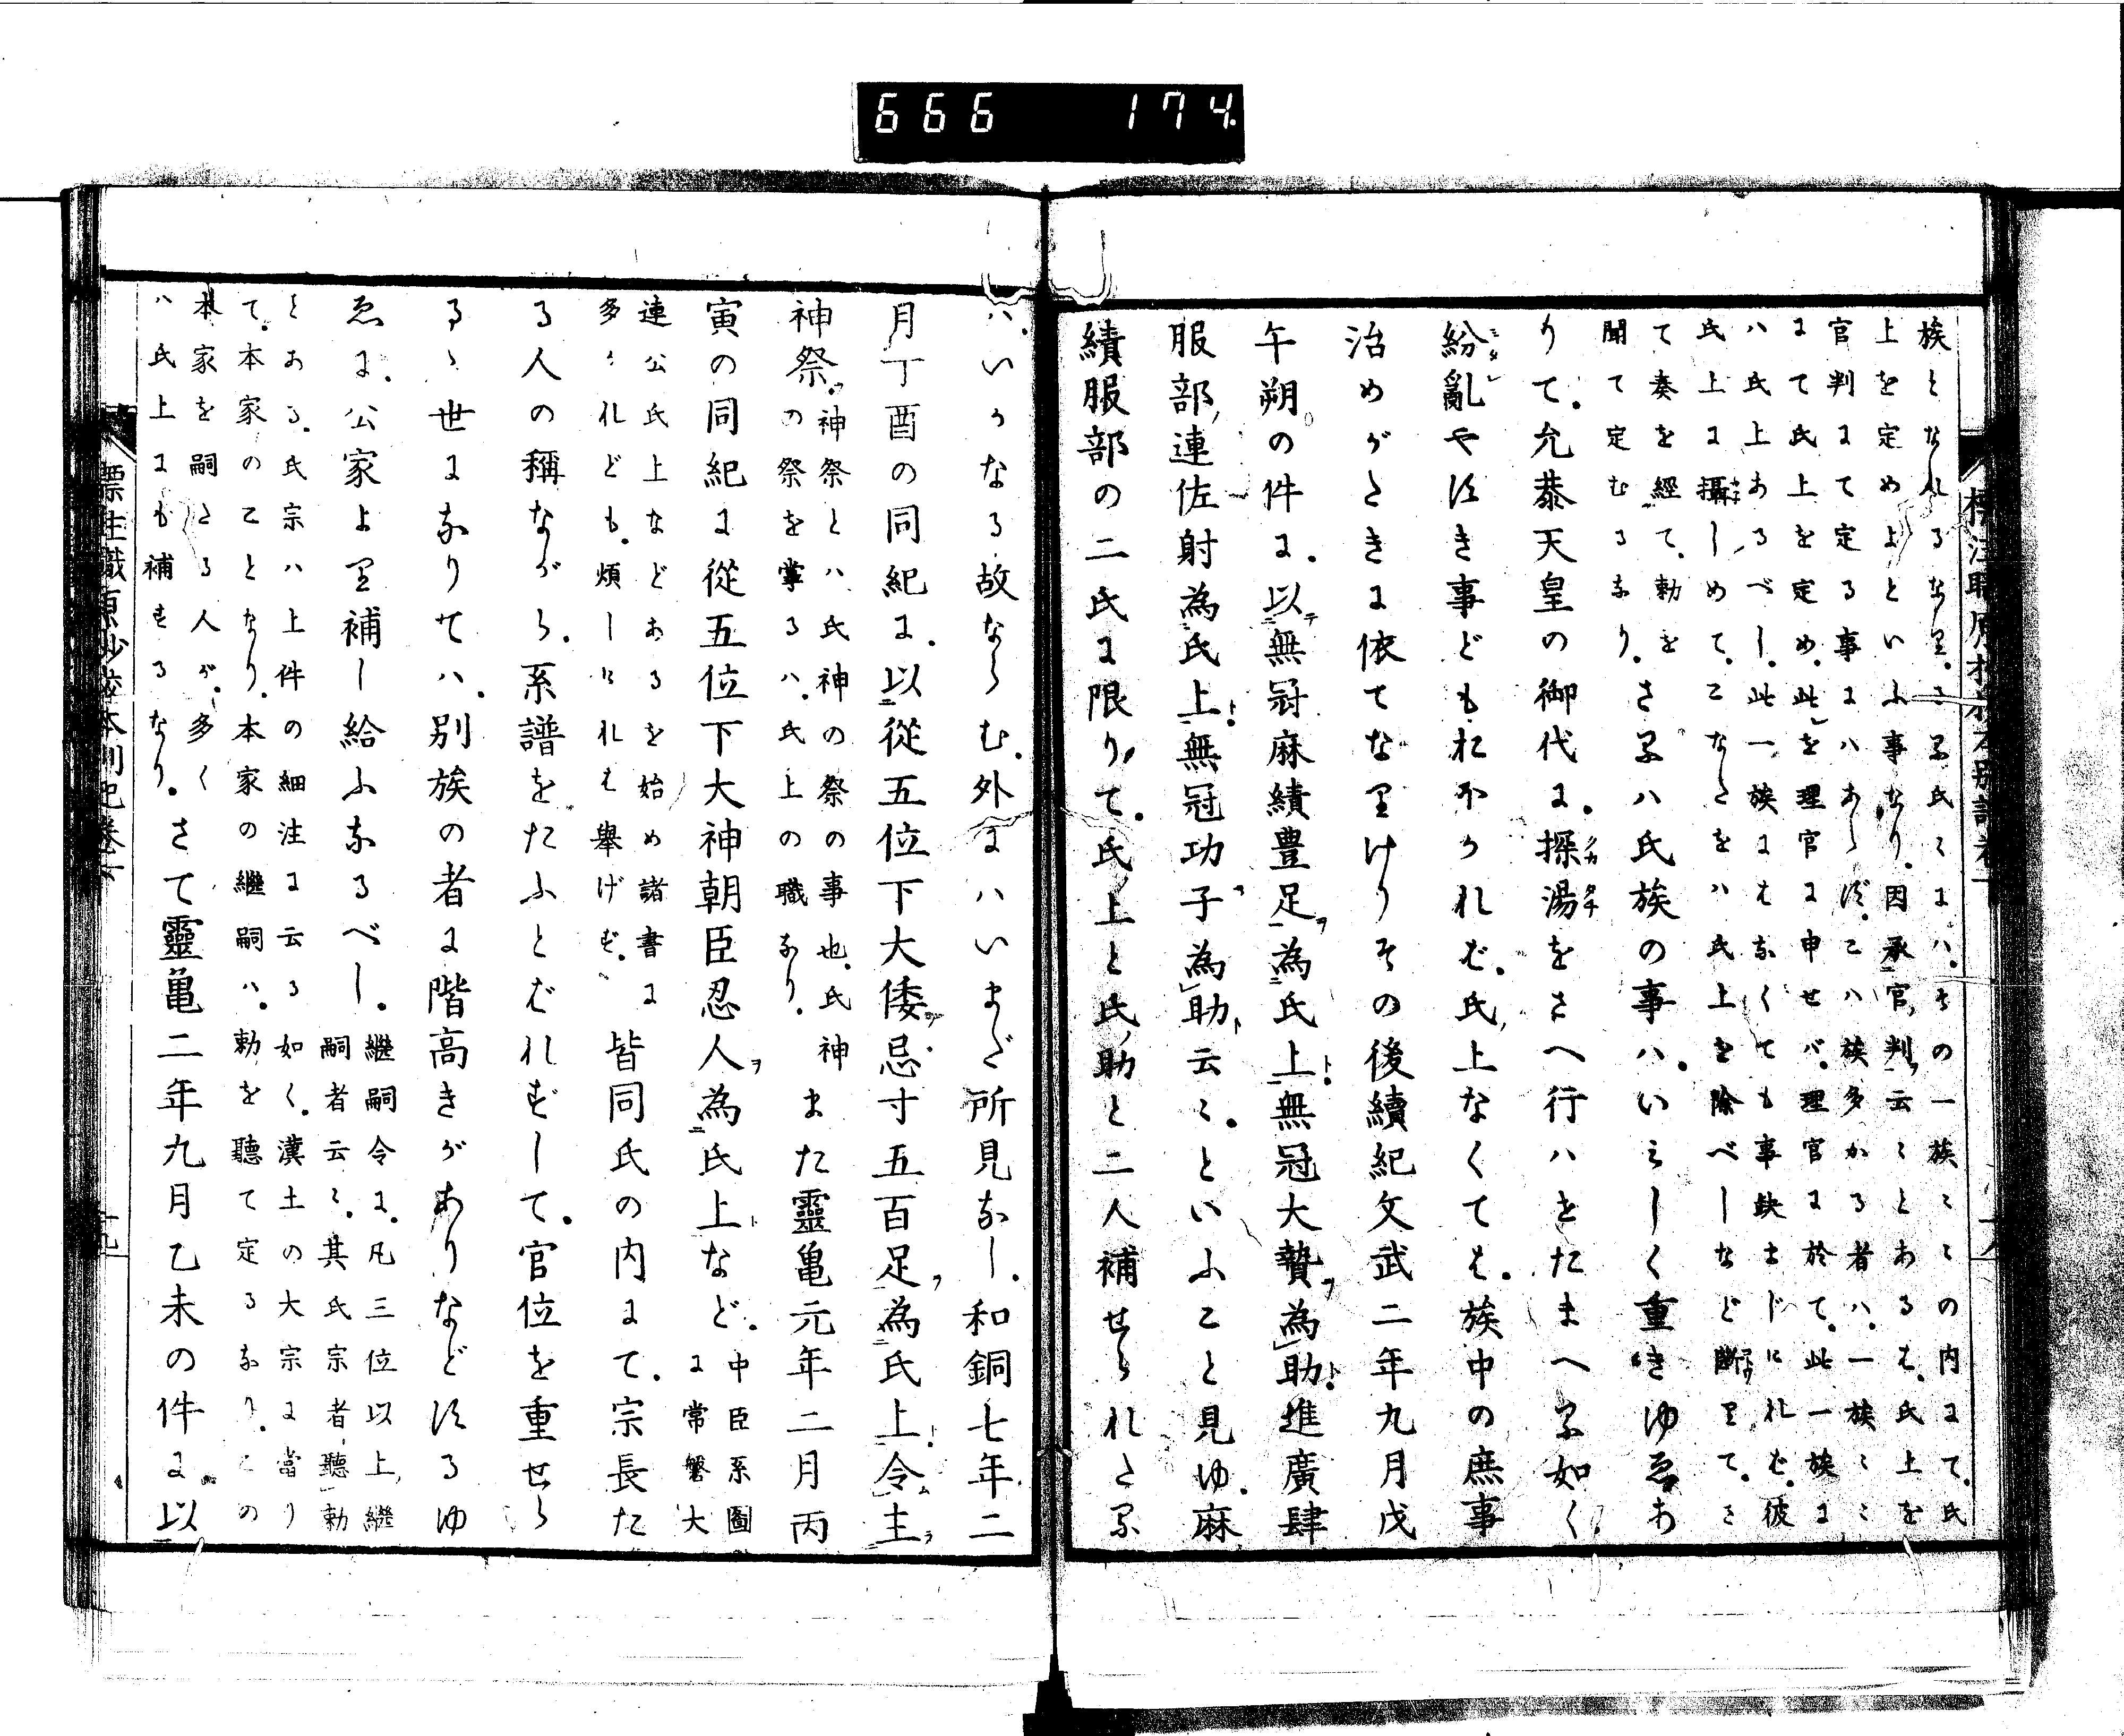 666 174
族となれるなり。さる氏々には。その一族々々の内にて。氏
上を定めよといふ事なり。因承官判云々とあるは。氏上を
官判にて定る事にはあらず。こは族多かる者は。一族々々
にて氏上を定め。此を理官に申せば。理官に於て。此一族に
は氏上あるべし。此一族にはなくても事缺まじければ。彼
氏上に攝しめて。こなたをは氏上を除べしなど断りて。さ
て奏を經て。勅を
聞て定むるなり。さるは氏族の事は。いみしく重きゆゑあ
りて。允恭天皇の御代に。探湯をさへ行はをたまへる如く
紛亂やすき事どもおほかれば。氏上なくては。族中の庶事
治めがたきに依てなりけりその後續紀文武二年九月戊
午朔の件に。以無冠麻績豊足為氏上無冠大贄為助進廣肆
服部連佐射為氏上無冠功子為助云々。といふこと見ゆ。麻
績服部の二氏に限りて。氏上と氏助と二人補せられたる
は。いかなる故ならむ。外にはいまだ所見なし。和銅七年二
月丁酉の同紀に。以從五位下大倭忌寸五百足為氏上令主
神祭。神祭とは氏神の祭の事也。氏神
の祭を掌るは。氏上の職なり。また靈亀元年二月丙
寅の同紀に從五位下大神朝臣忍人為氏上など。中臣系圖
に常磐大
連公氏上などあるを始め諸書に
多かれども。煩しければ舉げず。皆同氏の内にて。宗長た
る人の稱ながら。系譜をたふとばれずして。官位を重せら
るゝ世になりては。別族の者に階高きがありなどするゆ
ゑに。公家より補し給ふなるべし。繼嗣令に。凡三位以上繼
嗣者云々。其氏宗者聽勅
とある。氏宗は上件の細注に云る如く。漢土の大宗に當り
て。本家のことなり。本家の繼嗣は。勅を聽て定るなり。この
本家を嗣たる人が。多く
は氏上にも補するなり。さて靈亀二年九月乙未の件に。以
標注職原抄校本別記卷下
十九